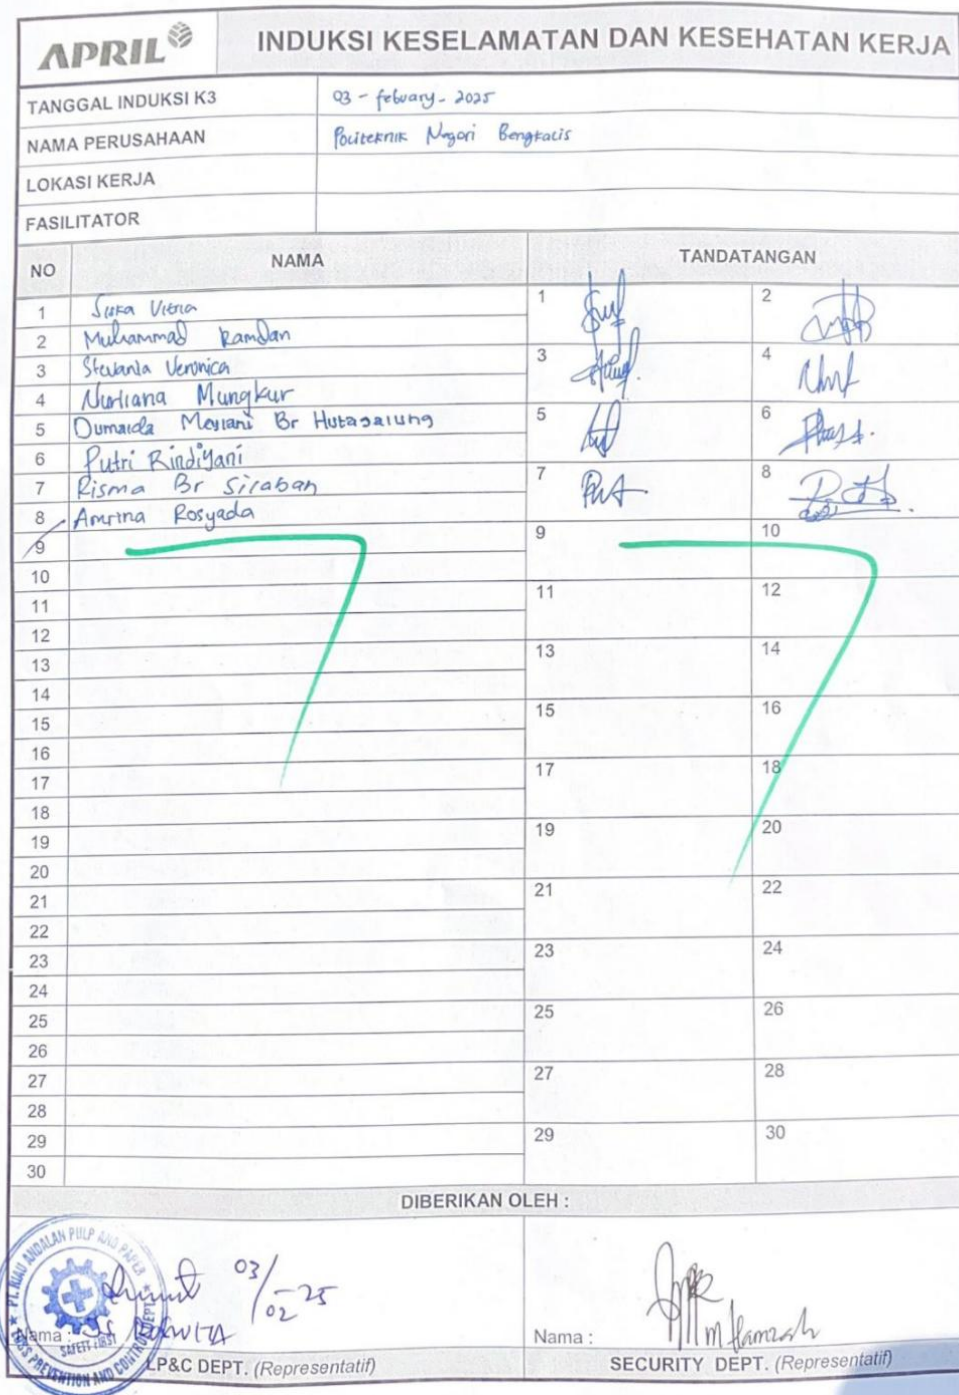 APRIL
INDUKSI KESELAMATAN DAN KESEHATAN KERJA
TANGGAL INDUKSI K3 03 - febuary - 2025
NAMA PERUSAHAAN Politeknik Negeri Bengkalis
LOKASI KERJA
FASILITATOR
NO NAMA TANDATANGAN
1 Siska Vitria
2 Muhammad Ramdan
3 Stevania Veronica
4 Nurliana Mungkur
5 Dumaida Mesiani Br Hutagalung
6 Putri Rindiyani
7 Risma Br Siraban
8 Amrina Rosyada
9
10
11
12
13
14
15
16
17
18
19
20
21
22
23
24
25
26
27
28
29
30
1 2
3 4
5 6
7 8
9 10
11 12
13 14
15 16
17 18
19 20
21 22
23 24
25 26
27 28
29 30
DIBERIKAN OLEH :
PT. RIAU ANDALAN PULP AND PAPER
SAFETY FIRST
LOSS PREVENTION AND CONTROL DEPT.
03/02-25
Nama :
Nama : M Hamzah
LP&C DEPT. (Representatif)
SECURITY DEPT. (Representatif)